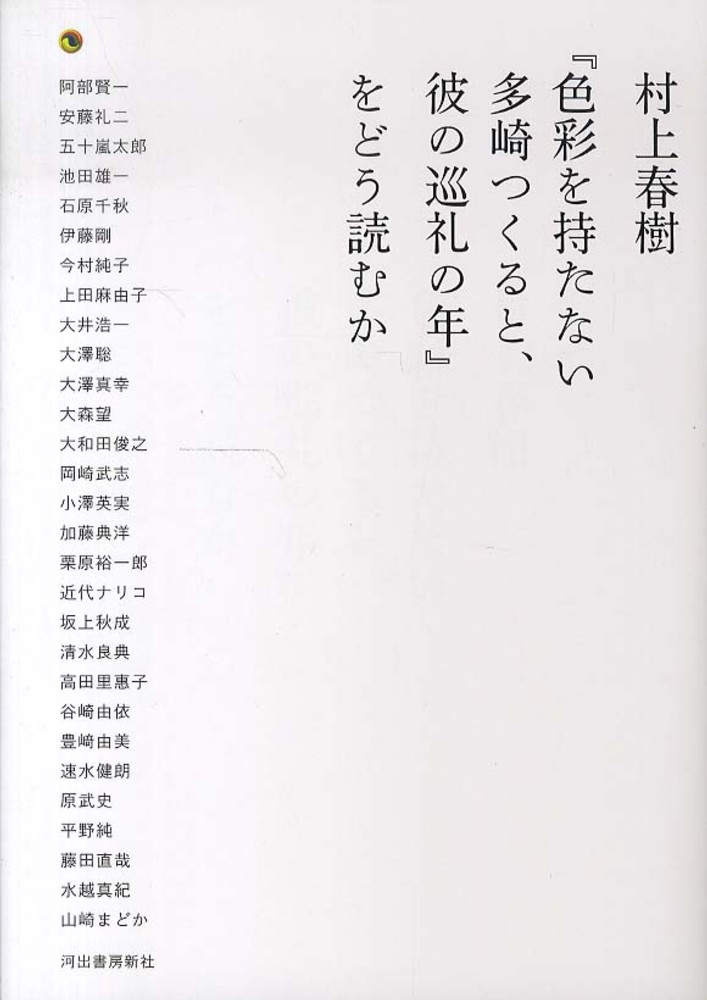 村上春樹
『色彩を持たない
多崎つくると、
彼の巡礼の年』
をどう読むか
阿部賢一
安藤礼二
五十嵐太郎
池田雄一
石原千秋
伊藤剛
今村純子
上田麻由子
大井浩一
大澤聡
大澤真幸
大森望
大和田俊之
岡崎武志
小澤英実
加藤典洋
栗原裕一郎
近代ナリコ
坂上秋成
清水良典
高田里惠子
谷崎由依
豊﨑由美
速水健朗
原武史
平野純
藤田直哉
水越真紀
山崎まどか
河出書房新社